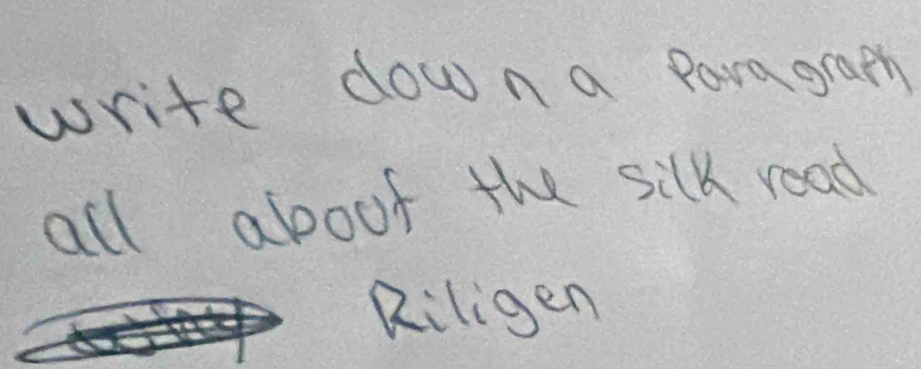 write down a Paragraph
all about the silk road
Riligen